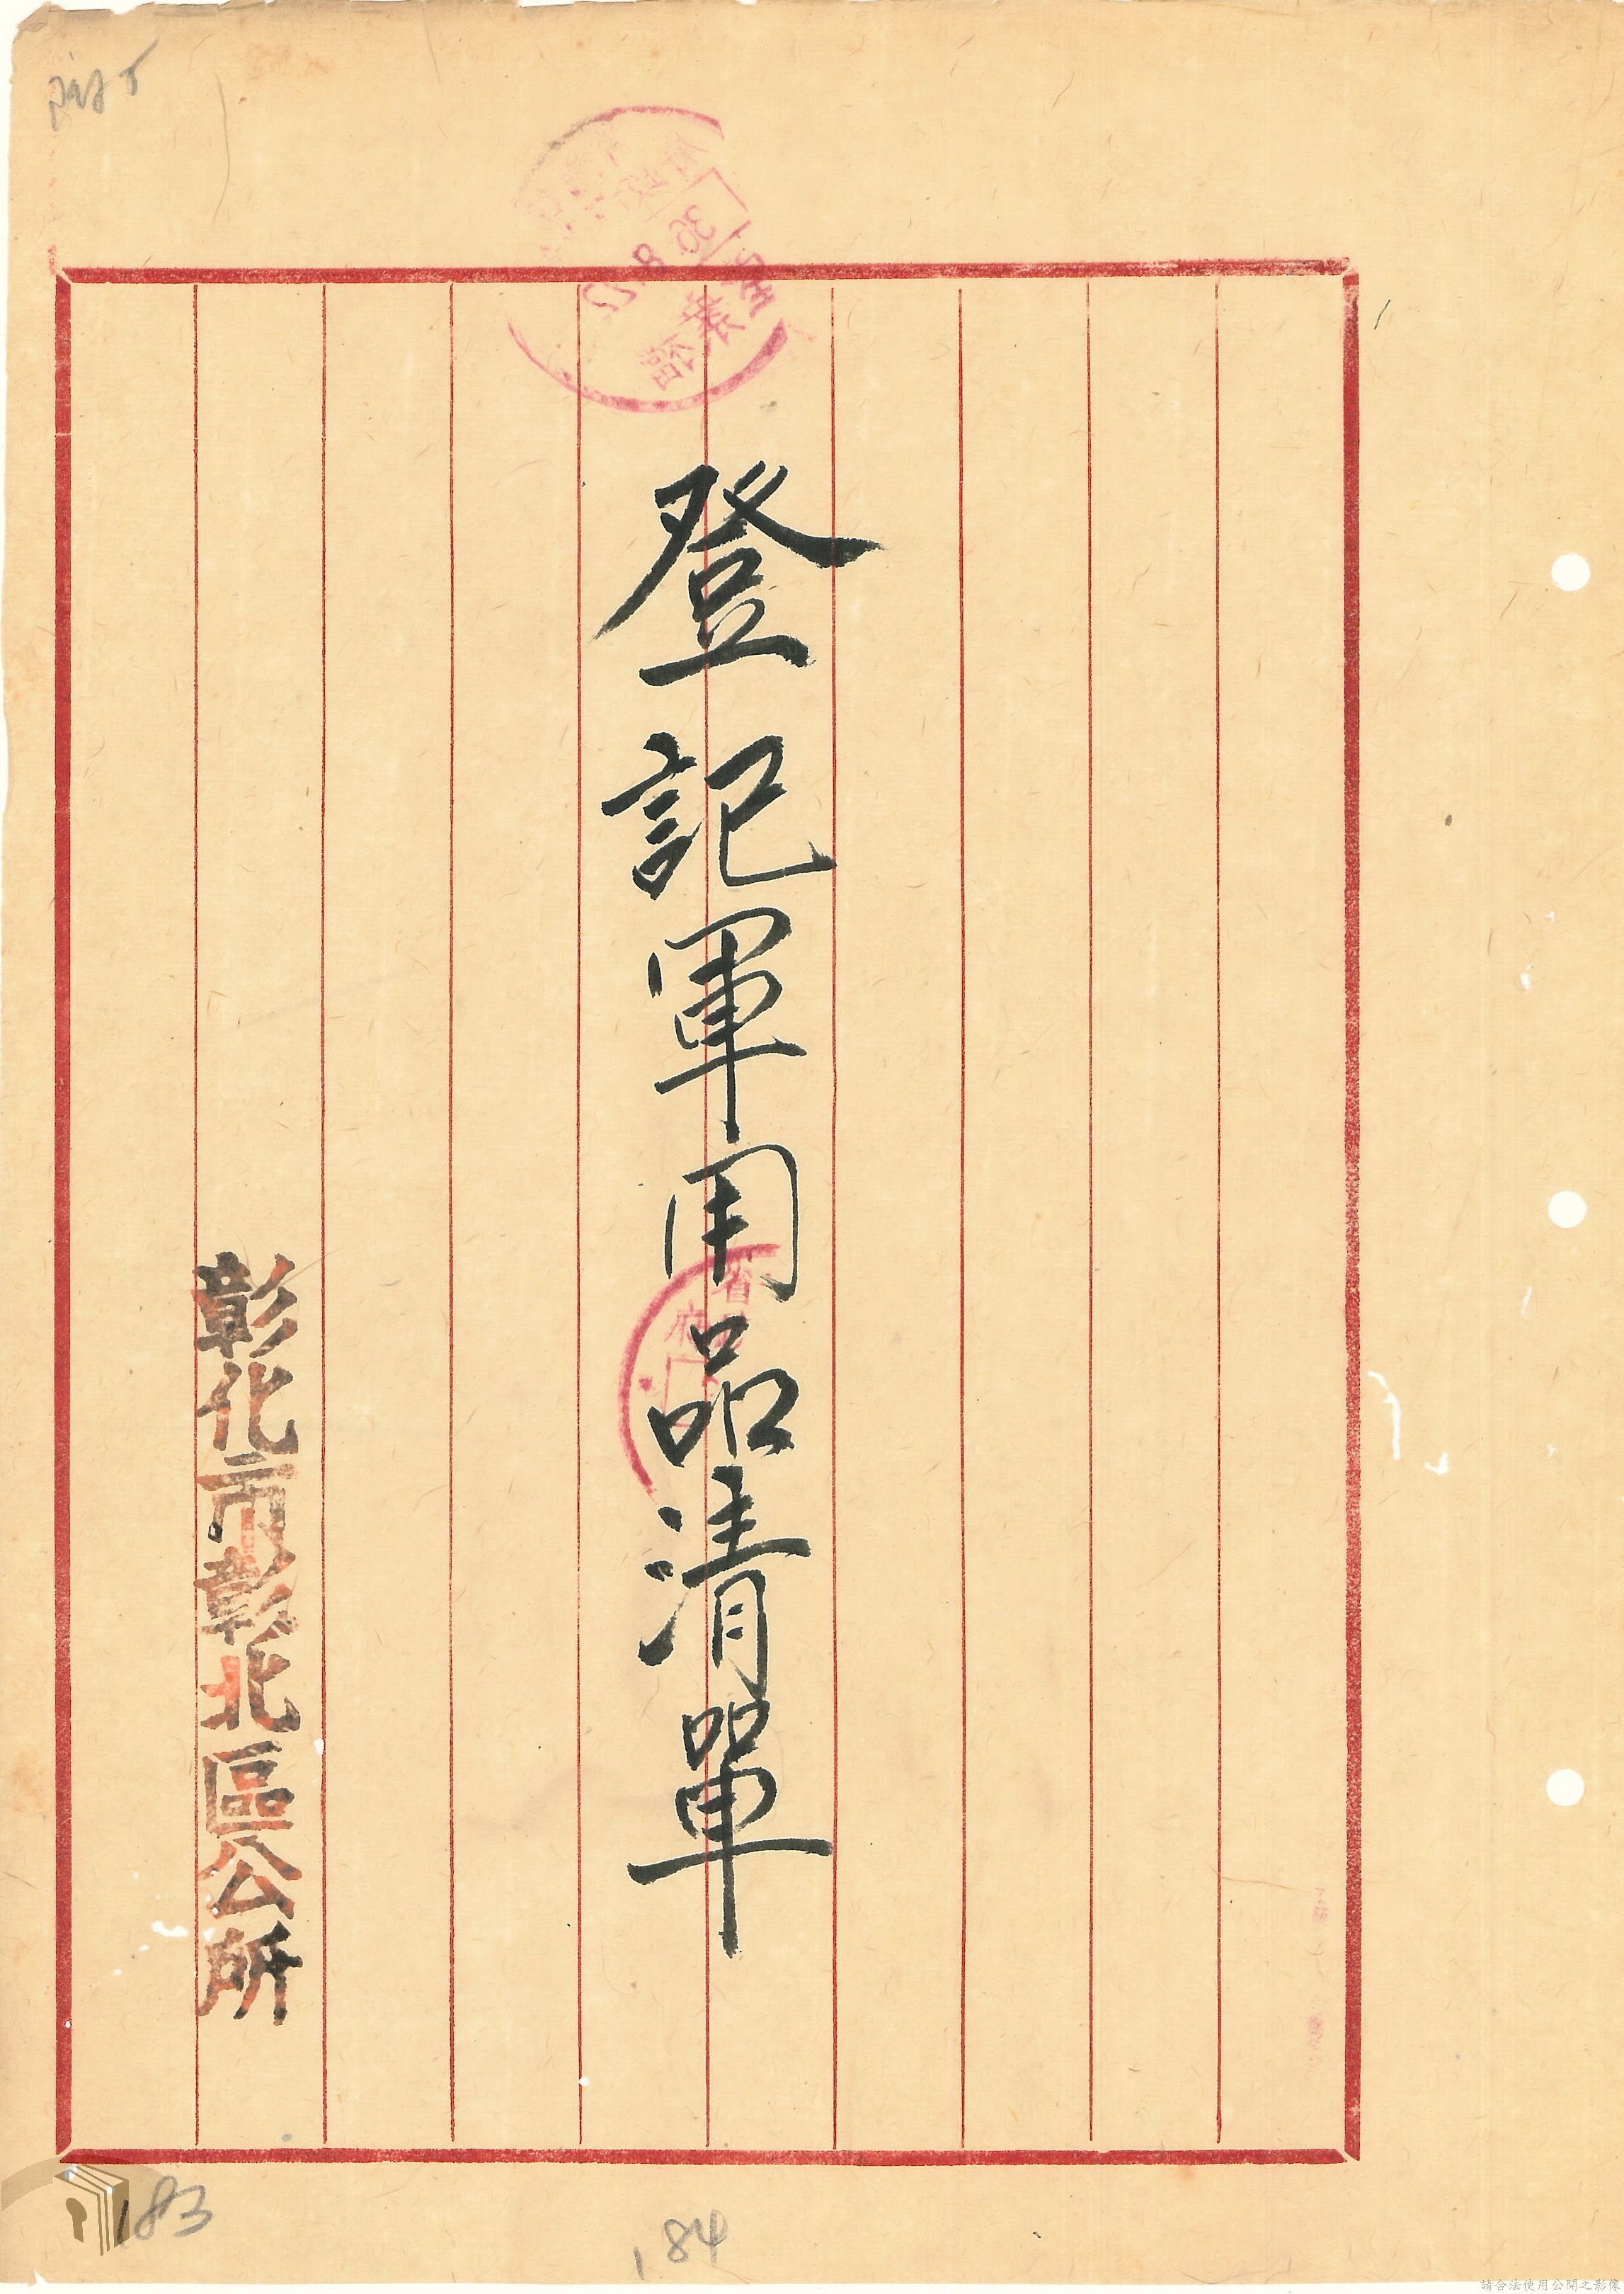 登記軍用品清單
彰化市彰北區公所
183
184
請合法使用公開之影像